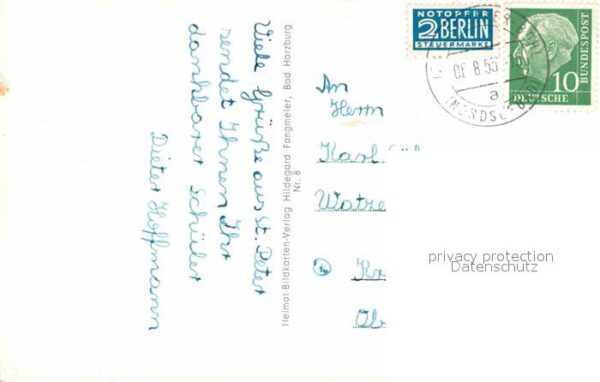 Viele Grüße aus St. Peter
sendet Ihnen Ihr
dankbarer Schüler
Dieter Hoffmann
Heimat-Bildkarten-Verlag Hildegard Fangmeier, Bad Harzburg
Nr. 8
NOTOPFER
2 BERLIN
STEUERMARKE
06.8.55
a
(NORDSEE
DEUTSCHE
BUNDESPOST
10
An
Herrn
Karl
privacy protection
Datenschutz